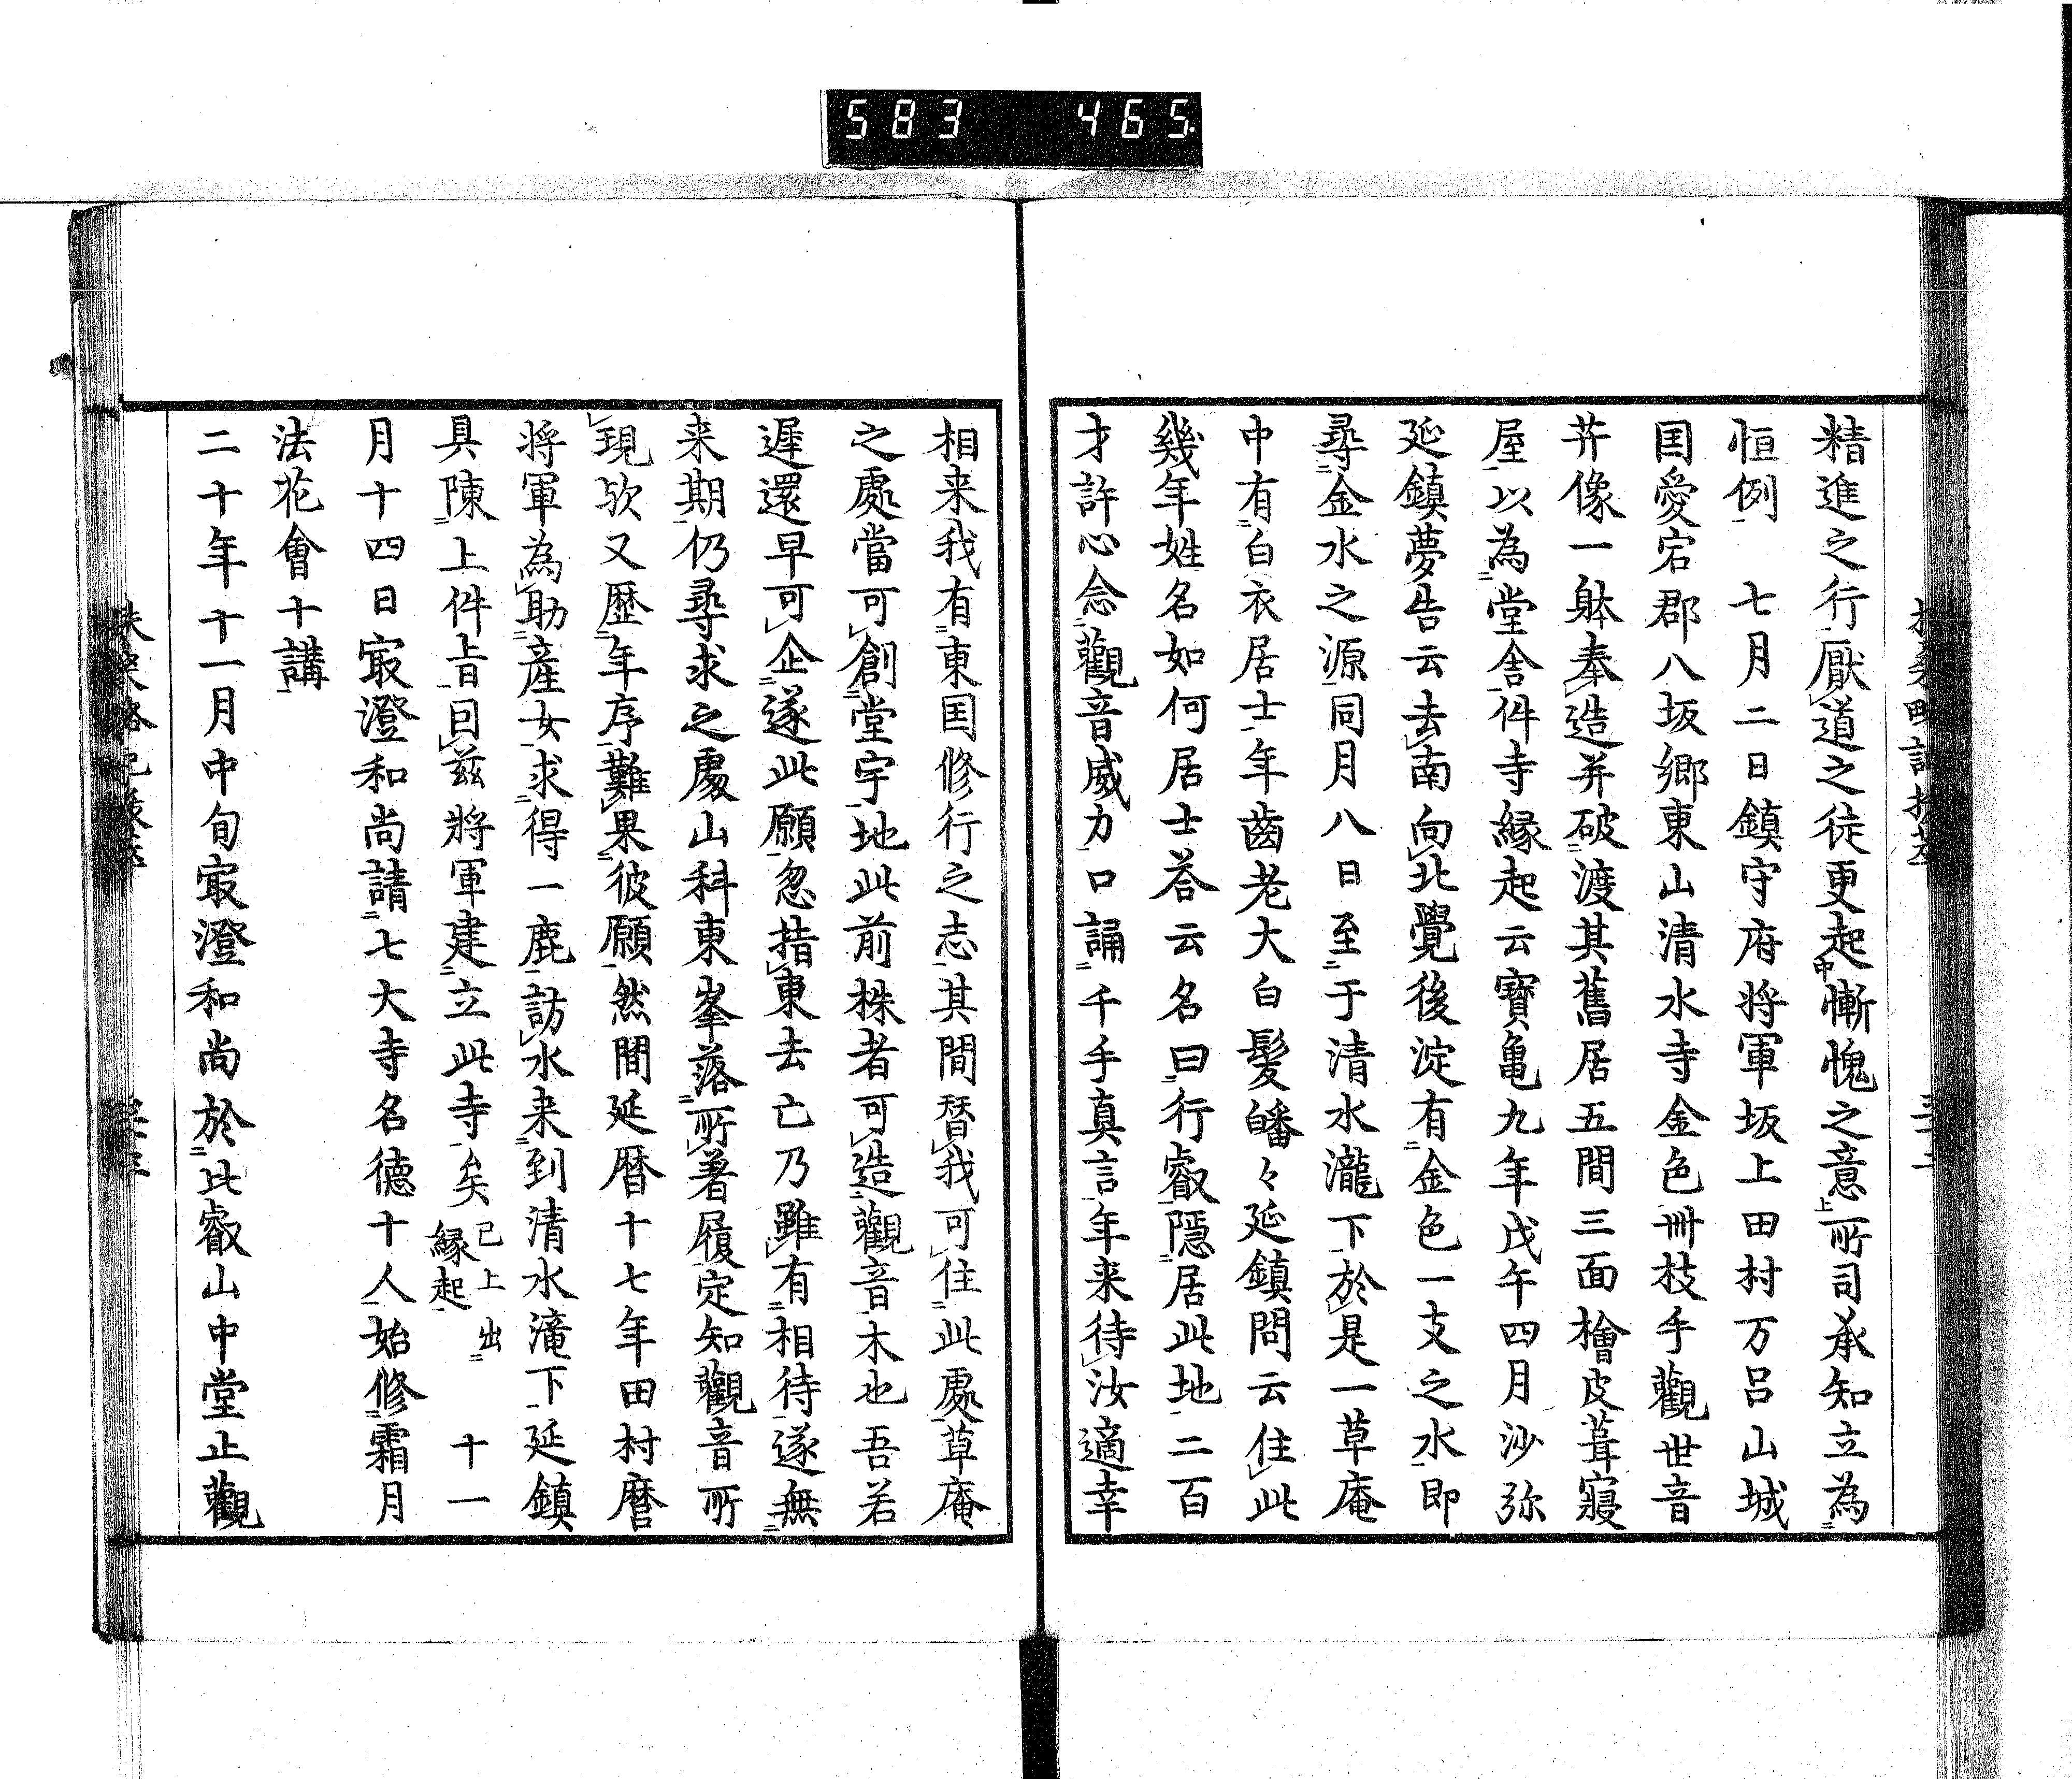 583 465
精進之行厭道之徒更起慚愧之意所司承知立為
恒例 七月二日鎮守府将軍坂上田村万呂山城
国愛宕郡八坂郷東山清水寺金色卌枝手觀世音
井像一躰奉造并破渡其舊居五間三面檜皮葺寢
屋以為堂舎件寺縁起云寶亀九年戊午四月沙弥
延鎮夢告云去南向北覺後淀有金色一支之水即
尋金水之源同月八日至于清水瀧下於是一草庵
中有白衣居士年齒老大白髪皤々延鎮問云住此
幾年姓名如何居士荅云名曰行叡隱居此地二百
才許心念觀音威力口誦千手真言年来待汝適幸
相来我有東国修行之志其間替我可住此處草庵
之處當可創堂宇地此前株者可造觀音木也吾若
遅還早可企遂此願忽指東去亡乃雖有相待遂無
来期仍尋求之處山科東峯落所著履定知觀音所
現欤又歴年序難果彼願然間延暦十七年田村麿
将軍為助産女求得一鹿訪水来到清水滝下延鎮
具陳上件旨曰茲将軍建立此寺矣已上出縁起 十一
月十四日㝡澄和尚請七大寺名徳十人始修霜月
法花會十講
二十年十一月中旬㝡澄和尚於比叡山中堂止觀